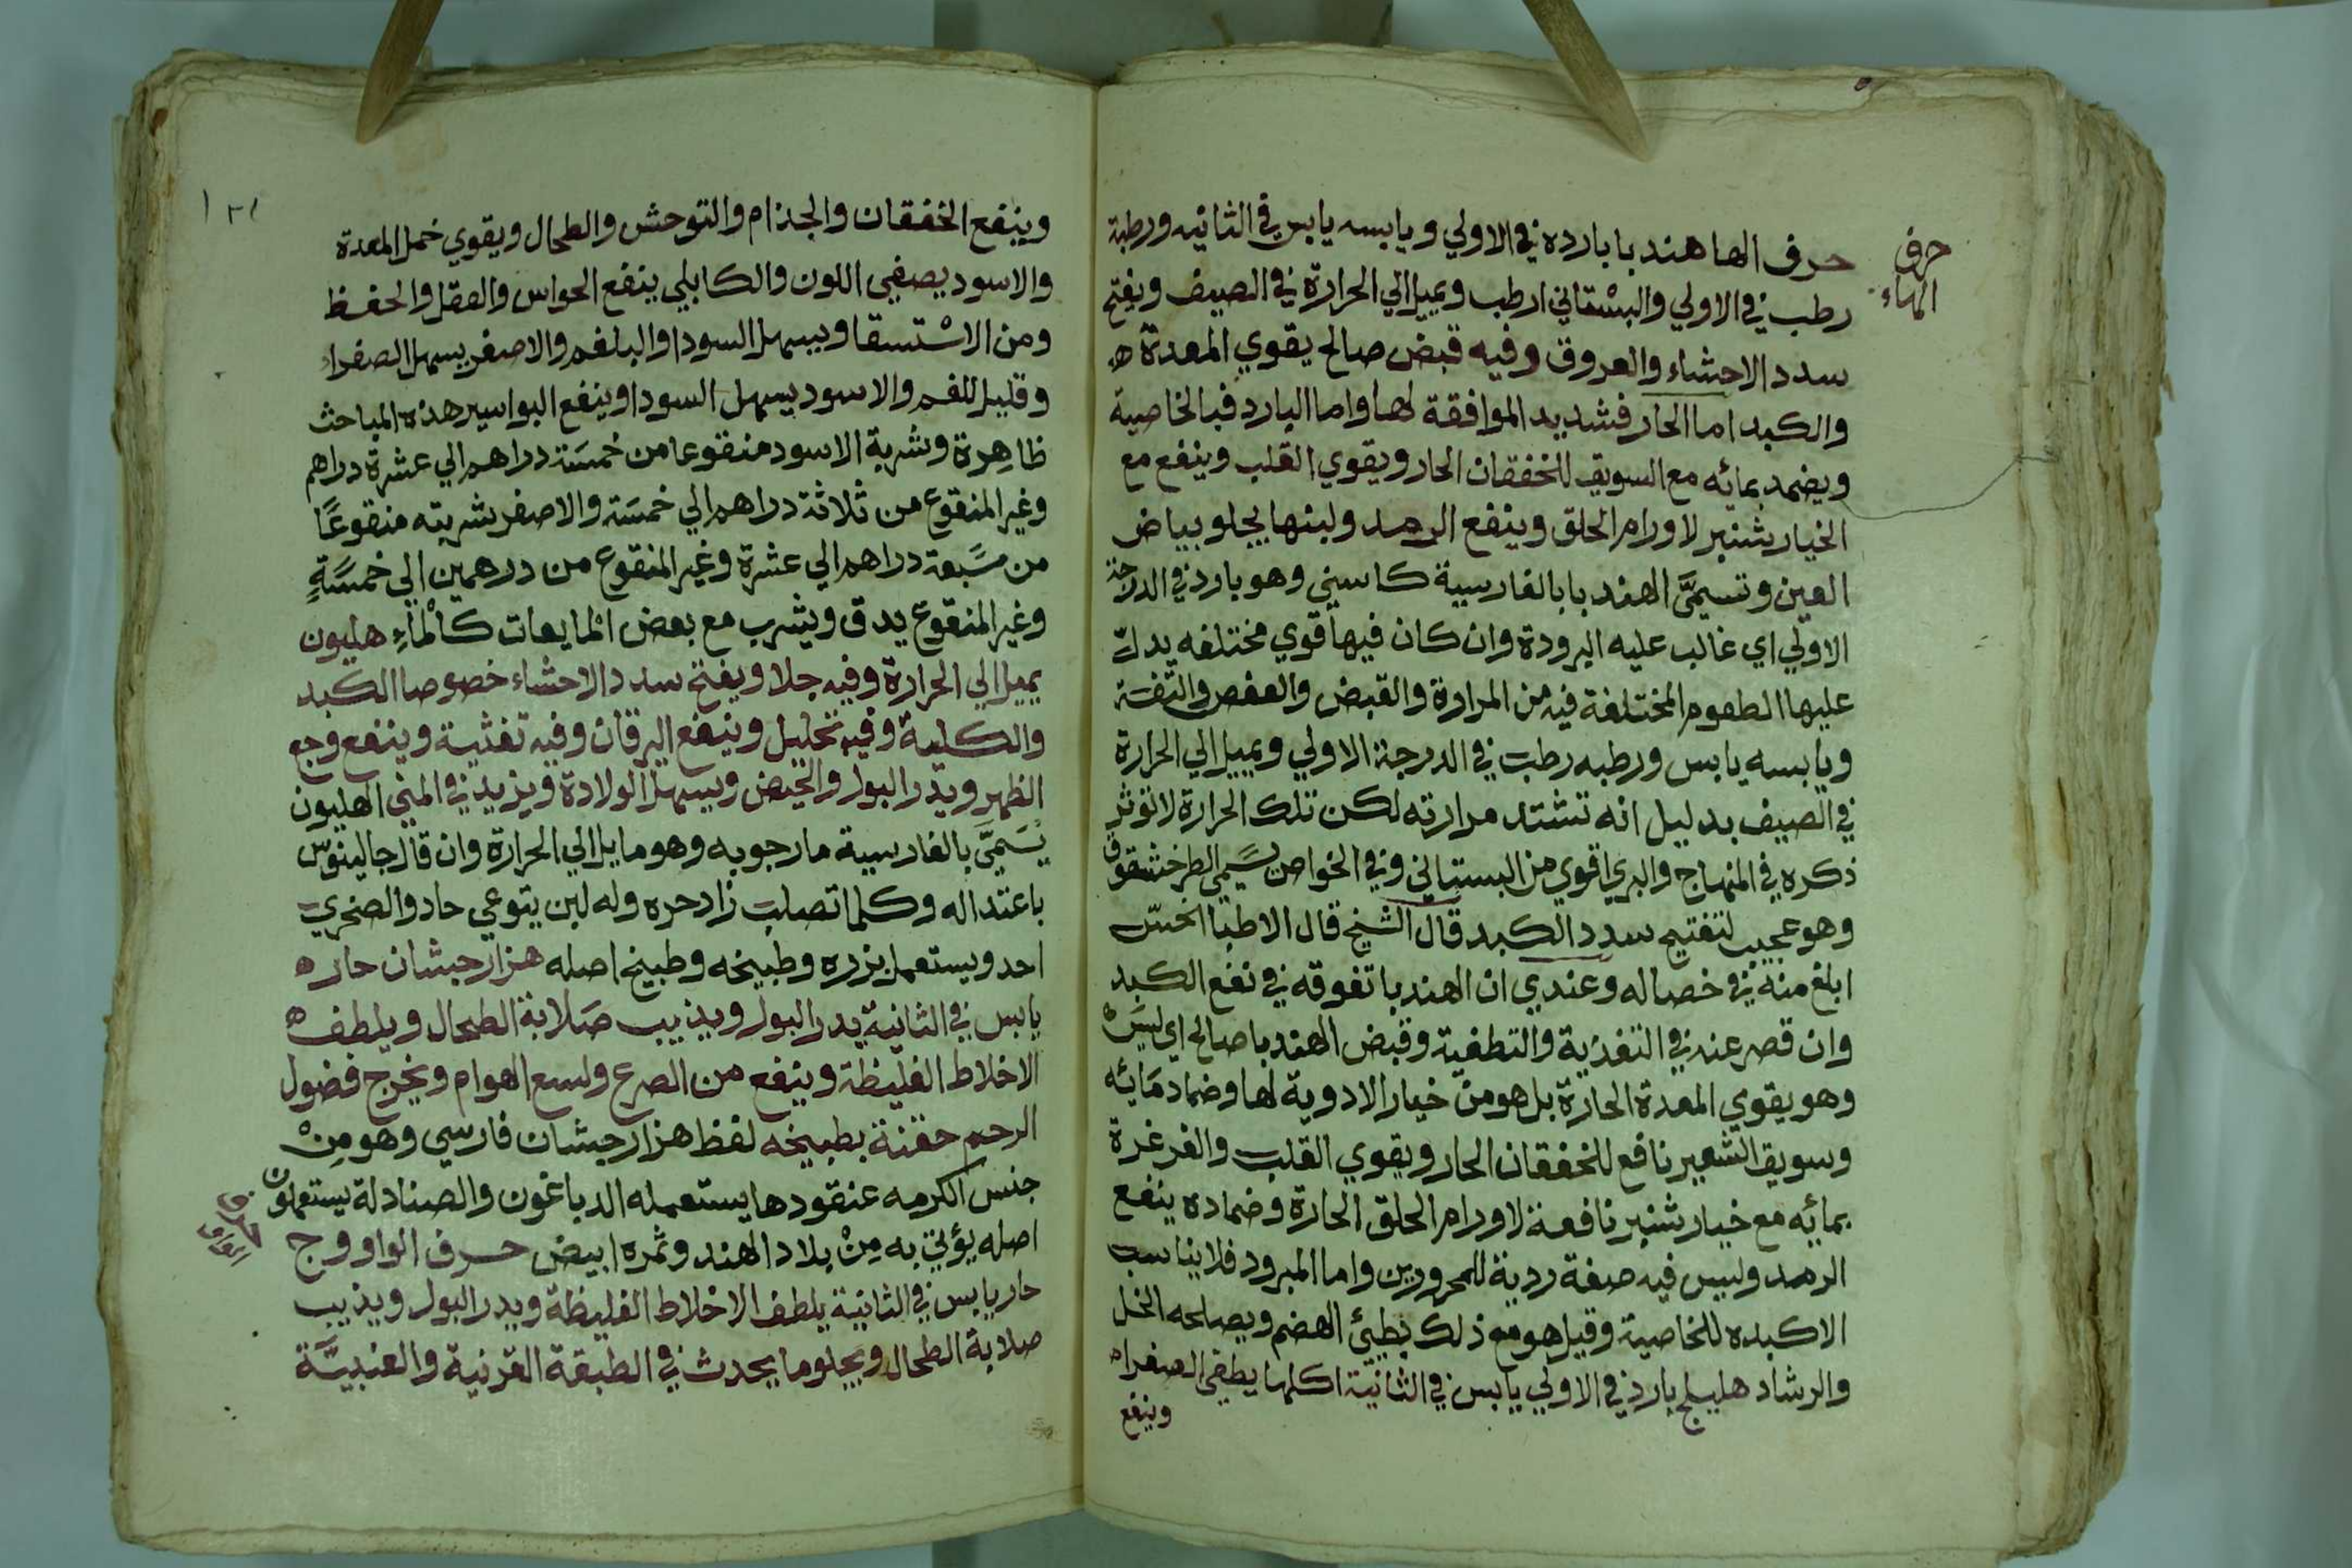 حرف
الهاء
حرف الها هندبا بارده في الاولي ويابسه يابس في الثانيه ورطبة
رطب في الاولي والبستاني ارطب ويميل الي الحرارة في الصيف ويفتح
سدد الاحشاء والعروق وفيه قبض صالح يقوي المعدة ه
والكبد اما الحار فشديد الموافقة لها واما البارد فبالخاصية
ويضمد بمائه مع السويق للخفقان الحار ويقوي القلب وينفع مع
الخيار شنبر لاورام الحلق وينفع الرمد ولبنها يجلو بياض
العين وتسمي الهندبا بالفارسية كاسني وهو بارد في الدرجة
الاولي اي غالب عليه البرودة وان كان فيها قوي مختلفه يدل
عليها الطعوم المختلفة فيه من المرارة والقبض والعفص والتفة
ويابسه يابس ورطبه رطب في الدرجة الاولي ويميل الي الحرارة
في الصيف بدليل انه تشتد مرارته لكن تلك الحرارة لا توثر
ذكره في المنهاج والبري اقوي من البستاني وفي الخواص يسمي الطرخشقوق
وهو عجيب لتفتيح سدد الكبد قال الشيخ قال الاطبا الخس
ابلغ منه في خصاله وعندي ان الهندبا تفوقه في نفع الكبد
وان قصر عنه في التغذية والتطفية وقبض الهندبا صالح اي ليس
وهو يقوي المعدة الحارة بل هو من خيار الادوية لها وضماد مائه
وسويق الشعير نافع للخفقان الحار ويقوي القلب والغرغرة
بمائه مع خيار شنبر نافعة لاورام الحلق الحارة وضماده ينفع
الرمد وليس فيه صفة ردية للمحرورين واما المبرود فلا يناسب
الاكبده للخاصية وقيل هو مع ذلك بطيئ الهضم ويصلحه الخل
والرشاد هليلج بارد في الاولي يابس في الثانية اكلها يطفي الصفرا ه
وينفع
١٢١
وينفع الخفقان والجذام والتوحش والطحال ويقوي خمل المعدة
والاسود يصفي اللون والكابلي ينفع الحواس والعقل والحفظ
ومن الاستسقا ويسهل السودا والبلغم والاصفر يسهل الصفراء
وقليل للغم والاسود يسهل السودا وينفع البواسير هذه المباحث
ظاهرة وشربة الاسود منقوعا من خمسة دراهم الي عشرة دراهم
وغير المنقوع من ثلاثة دراهم الي خمسة والاصفر شربته منقوعًا
من سبعة دراهم الي عشرة وغير المنقوع من درهمين الي خمسةٍ
وغير المنقوع يدق ويشرب مع بعض المايعات كالماءِ هليون
يميل الي الحرارة وفيه جلا ويفتح سدد الاحشاء خصوصا الكبد
والكلية وفيه تحليل وينفع اليرقان وفيه تغثية وينفع وجع
الظهر ويدر البول والحيض ويسهل الولادة ويزيد في المني الهليون
يسمي بالفارسية مارجوبه وهو مايل الي الحرارة وان قال جالينوس
باعتداله وكلما تصلب زاد حره وله لبن يتوعي حاد والصخري
احد ويستعمل بزره وطبيخه وطبيخ اصله هزارجشان حار ه
يابس في الثانية يدر البول ويذيب صلابة الطحال ويلطف ه
الاخلاط الغليظة وينفع من الصرع ولسع الهوام ويخرج فضول
الرحم حقنة بطبيخه لفظ هزارجشان فارسي وهو مِنْ
جنس الكرمه عنقودها يستعمله الدباغون والصنادلة يستعملون
اصله يؤتي به مِنْ بلاد الهند وثمره ابيض حرف الواو وج
حرف
الواو
حار يابس في الثانية يلطف الاخلاط الغليظة ويدر البول ويذيب
صلابة الطحال ويجلو ما يحدث في الطبقة القرنية والعنبيَّة